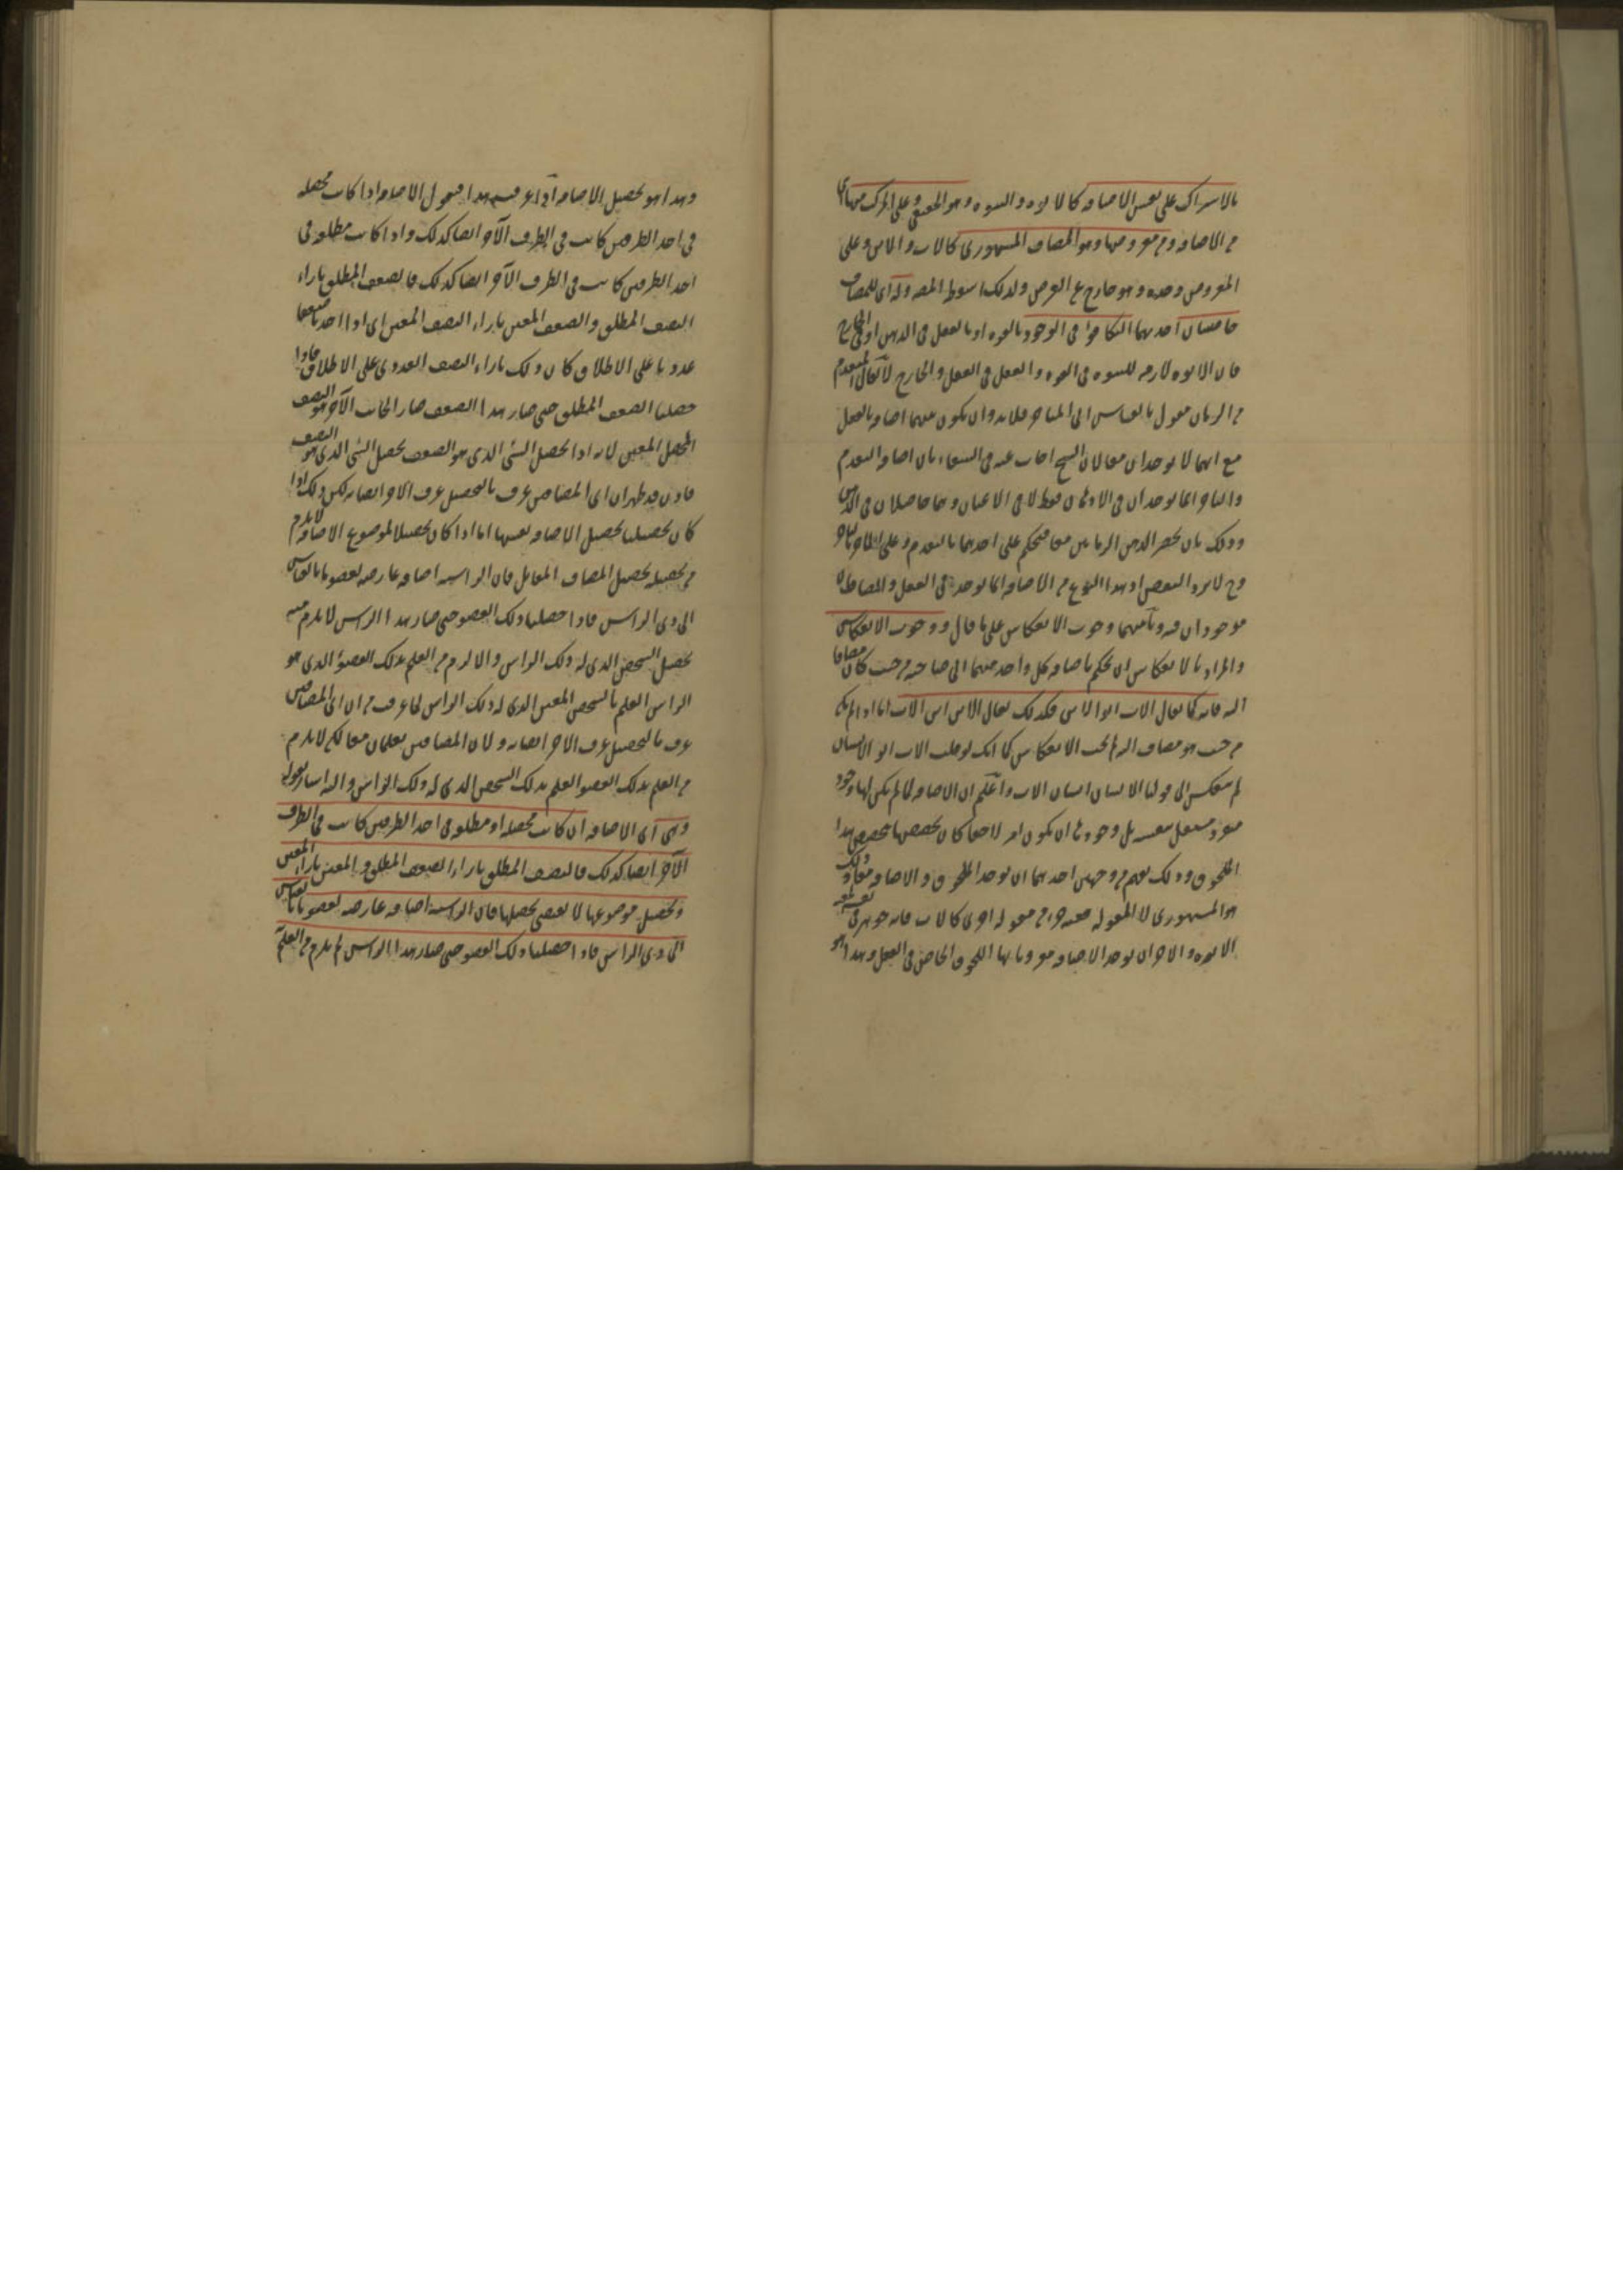 بالاشتراك على نفس الاضافة كالابوة والبنوة وهو الحقيقى وعلى المركب منهما اى
من الاضافة ومن معروضها وهو المضاف المشهورى كالاب والابن وعلى
المعروض وحده وهو خارج عن الغرض ولذلك اسقط المص وله اى للمضاف
خاصيتان احديهما التكافؤ فى الوجود بالقوة او بالفعل فى الذهن او فى الخارج
فان الابوة لازمة للبنوة فى القوة والفعل فى العقل والخارج لا يقال المتقدم
من الزمان مقول بالقياس الى المتاخر فلا بد وان يكون بينهما اضافة بالفعل
مع انهما لا يوجدان معا لان الشيخ اجاب عنه فى الشفاء بان اضافة التقدم
والتاخر انما يوجدان فى الاذهان فقط لا فى الاعيان وهما حاصلان فى الذهن
وذلك بان يحضر الذهن الزمانين معا فيحكم على احدهما بالتقدم وعلى الاخر بالتاخر
وح لا يرد النقض اذ هذا النوع من الاضافة انما يوجد فى العقل والمضافان
موجودان فيه وثانيهما وجوب الانعكاس على ما قال ووجوب الانعكاس
والمراد بالانعكاس ان يحكم باضافة كل واحد منهما الى صاحبه من حيث كان مضافا
اليه فانه كما يقال الاب ابو الابن فكذلك يقال الابن ابن الاب اما اذا لم يكن
من حيث هو مضاف اليه لم يجب الانعكاس كما انك لو قلت الاب ابو الانسان
لم ينعكس الى قولنا الانسان انسان الاب واعلم ان الاضافة لما لم يكن لها وجود
مفرد مستقل بنفسه بل وجودها ان يكون امرا لاحقا كان تخصصها بتخصص هذا
اللحوق وذلك يفهم من وجهين احدهما ان يوجد الملحوق والاضافة معا وذلك
هو المشهورى لا المقولة فيه جزء من مقولة اخرى كالاب فانه جوهر
الابوة والاخر ان يوجد الاضافة مقرونا بها اللحوق الخاص فى العقل وهذا هو
وهذا هو تحصيل الاضافة اذا عرفت هذا فنقول الاضافة اذا كانت محصلة
فى احد الطرفين كانت فى الطرف الآخر ايضا كذلك واذا كانت مطلقة فى
احد الطرفين كانت فى الطرف الآخر ايضا كذلك فالضعف المطلق بازاء
النصف المطلق والضعف المعين بازاء النصف المعين اى اذا اخذنا ضعفا
عدديا على الاطلاق كان ذلك بازاء النصف العددى على الاطلاق فاذا
حصلنا الضعف المطلق حتى صار هذا الضعف صار الجانب الآخر هو النصف
المحصل المعين لانه اذا تحصل الشئ الذى هو الضعف تحصل الشئ الذى هو النصف
فاذن قد ظهر ان اى المضافين عرف بالتحصيل عرف الاخر ايضا به لكن ذلك اذا
كان تحصيلنا تحصيل الاضافة نفسها اما اذا كان تحصيلا لموضوع الاضافة لا يلزم
من تحصيله تحصيل المضاف المقابل فان الراسية اضافة عارضة لعضو ما بالقياس
الى ذى الراس فاذا حصلنا ذلك العضو حتى صار هذا الراس لا يلزم منه
تحصيل الشخص الذى له ذلك الراس والا لزم من العلم بذلك العضو الذى هو
الراس العلم بالشخص المعين الذى له ذلك الراس لما عرفت من ان اى المضافين
عرف بالتحصيل عرف الاخر ايضا به ولان المضافين يعلمان معا لكن لا يلزم
من العلم بذلك العضو العلم بذلك الشخص الذى له ذلك الراس واليه اشار بقوله
وهى اى الاضافة ان كانت محصلة او مطلقة فى احد الطرفين كانت فى الطرف
الآخر ايضا كذلك فالنصف المطلق بازاء الضعف المطلق والمعين بازاء المعين
وتحصيل موضوعها لا يقتضى تحصيلها فان الراسية اضافة عارضة لعضو ما بالقياس
الى ذى الراس فاذا حصلنا ذلك العضو حتى صار هذا الراس لم يلزم من العلم